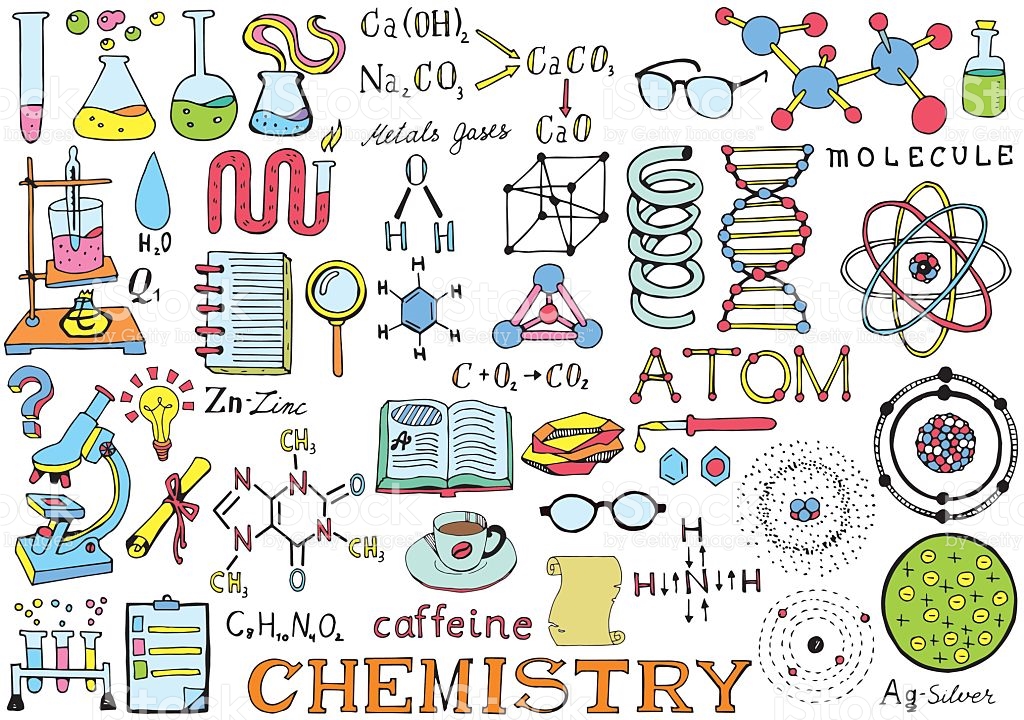 Ca(OH)₂
Na₂CO₃
CaCO₃
CaO
Metals gases
MOLECULE
H₂O
Q₁
O
H H
H
H H
H H
H
C + O₂ → CO₂
ATOM
Zn-Zinc
A
CH₃
N N O
N N CH₃
CH₃ O
H
H↓↑N↓↑H
C₈H₁₀N₄O₂
caffeine
CHEMISTRY
Ag-Silver
iStock
by Getty Images™